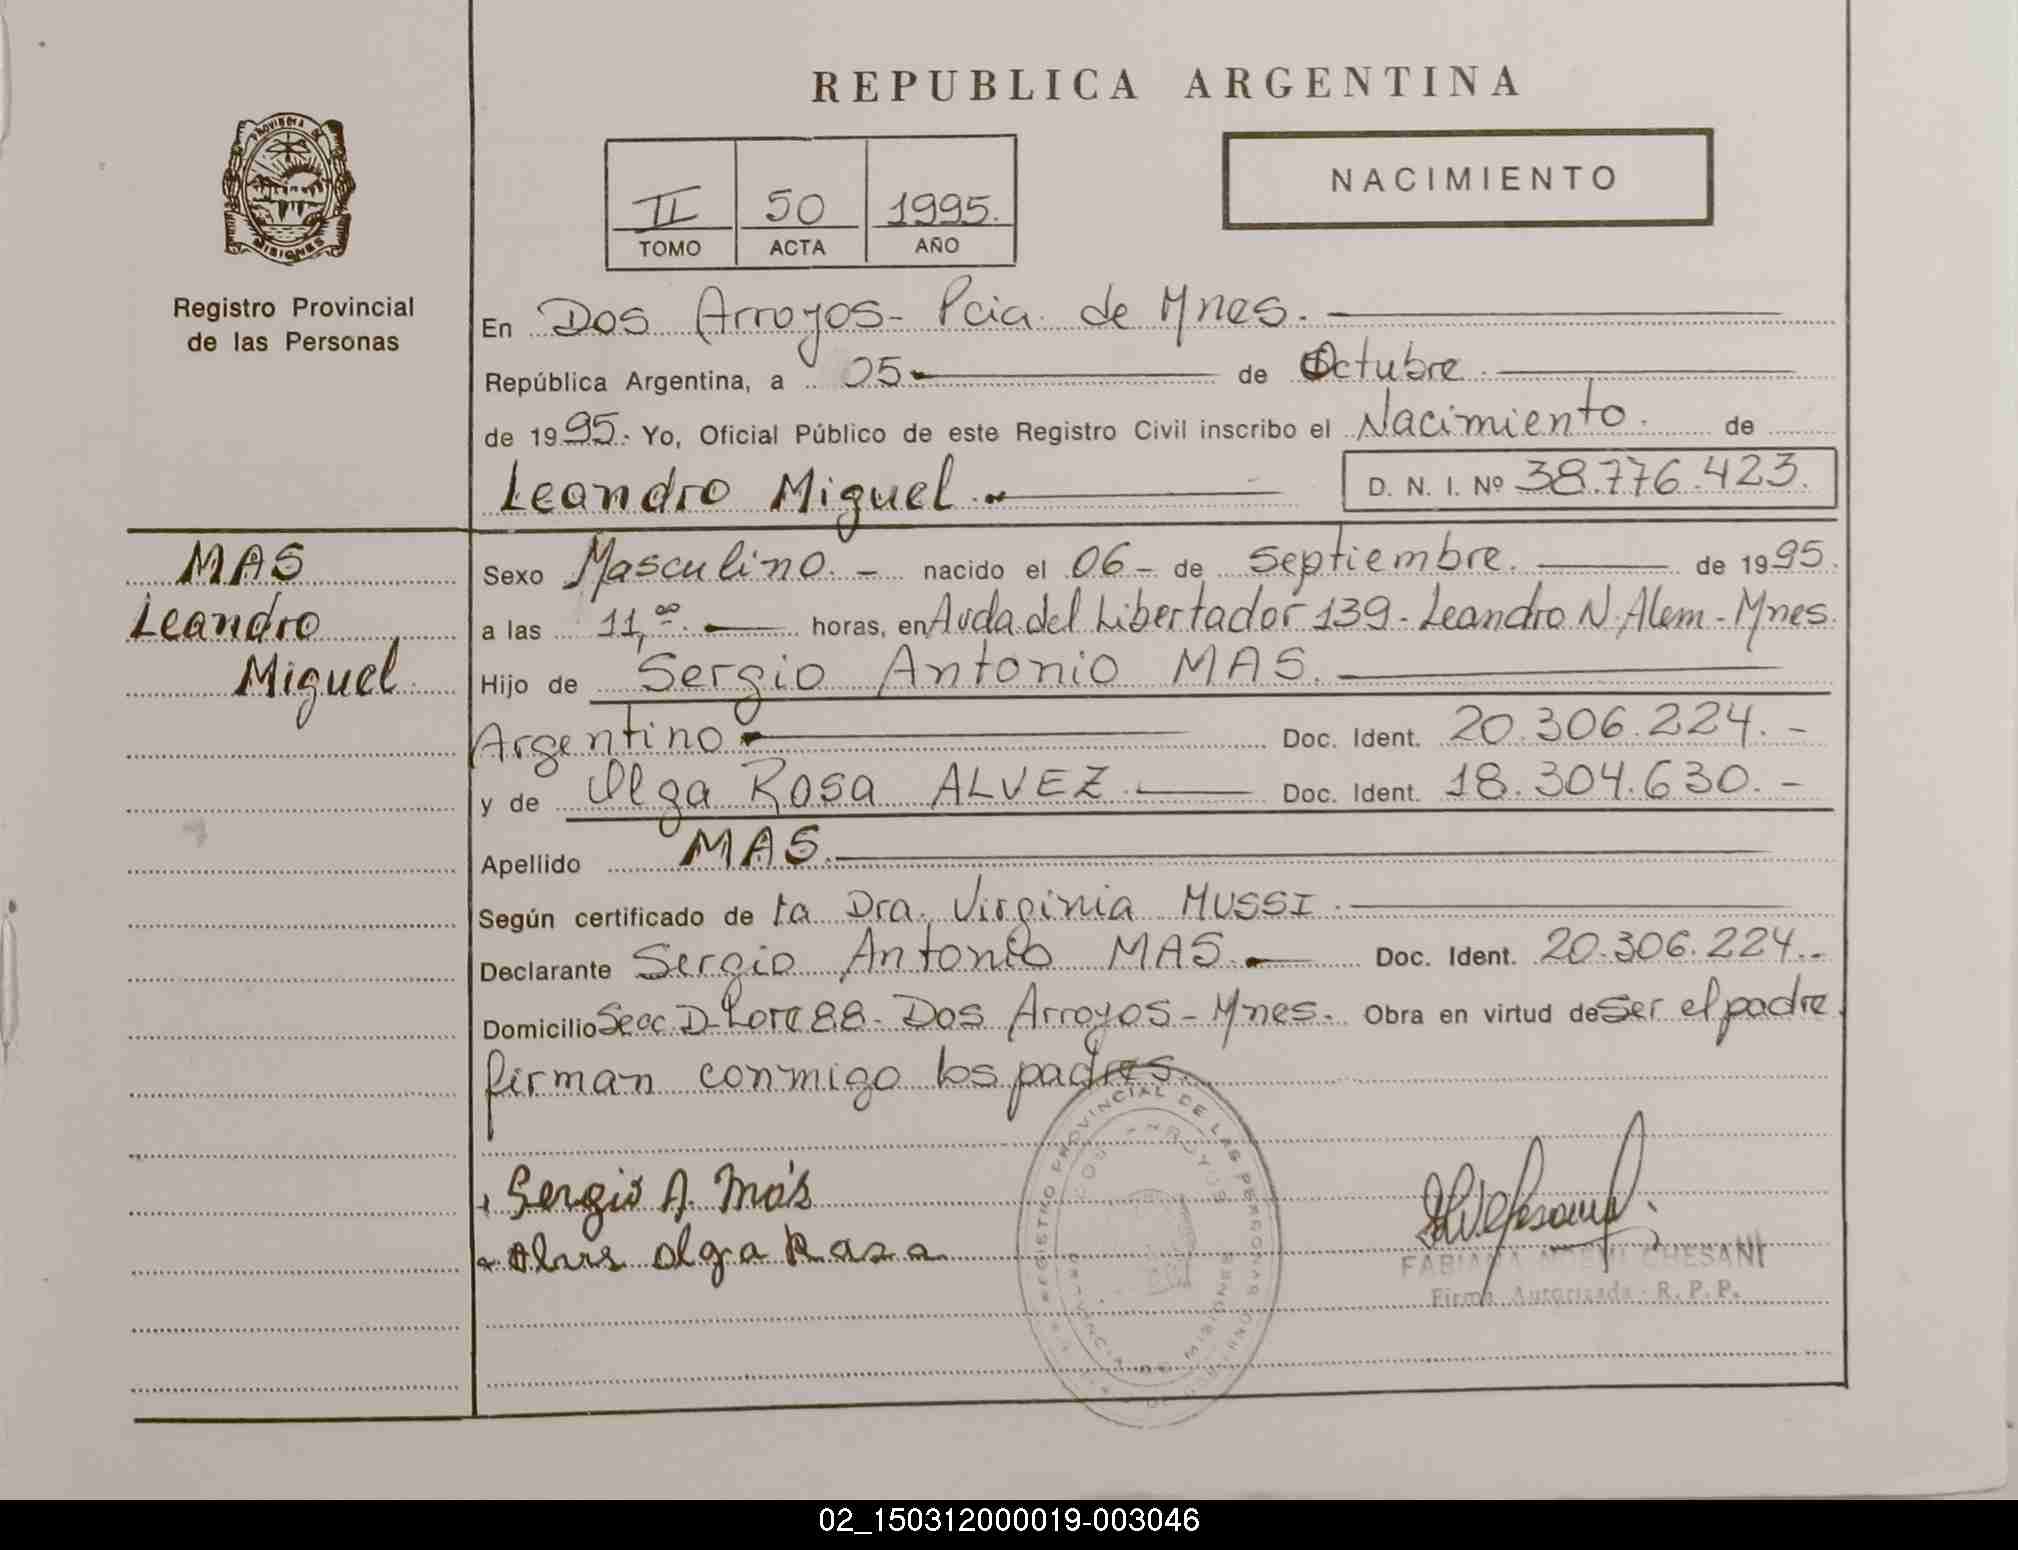 REPUBLICA ARGENTINA
PROVINCIA DE
MISIONES
Registro Provincial
de las Personas
II 50 1995.
TOMO ACTA AÑO
NACIMIENTO
En Dos Arroyos - Pcia. de Mnes.
República Argentina, a 05 de Octubre
de 1995. Yo, Oficial Público de este Registro Civil inscribo el Nacimiento. de
Leandro Miguel.
D. N. I. Nº 38.776.423.
MAS
Leandro
Miguel
Sexo Masculino. - nacido el 06 - de Septiembre. de 1995.
a las 11,00. horas, en Avda. del Libertador 139 - Leandro N. Alem - Mnes.
Hijo de Sergio Antonio MAS.
Argentino Doc. Ident. 20.306.224. -
y de Olga Rosa ALVEZ. Doc. Ident. 18.304.630. -
Apellido MAS.
Según certificado de la Dra. Virginia MUSSI.
Declarante Sergio Antonio MAS. Doc. Ident. 20.306.224. -
Domicilio Secc. D - Lote 88 - Dos Arroyos - Mnes. Obra en virtud de ser el padre.
firman conmigo los padres.
Sergio A. Más
Alves Olga Rasa
REGISTRO PROVINCIAL DE LAS PERSONAS
DOS ARROYOS
PROVINCIA DE MISIONES
FABIANA NOEMI CHESANI
Firma Autorizada - R. P. P.
02_150312000019-003046